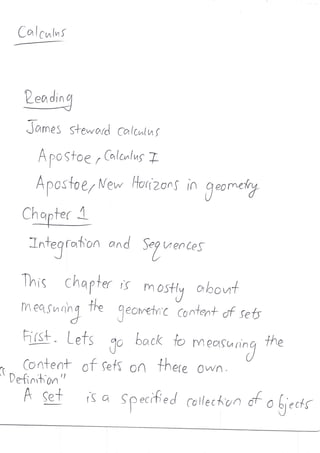 Calculus
Reading
James steward Calculus
Apostoe, Calculus I
Apostoe, New Horizons in geometry
Chapter 1
Integration and Sequences
This chapter is mostly about
measuring the geometric content of sets
First. Lets go back to measuring the
content of sets on there own.
"Definition"
A set is a specified collection of objects